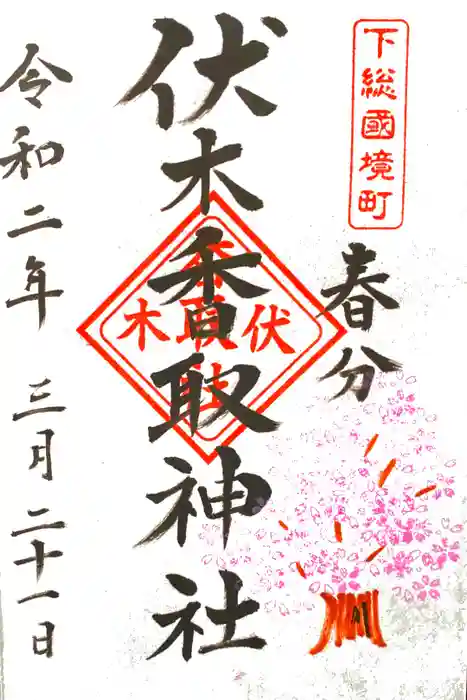 下総國境町
春分
伏木香取神社
伏木
令和二年 三月二十一日